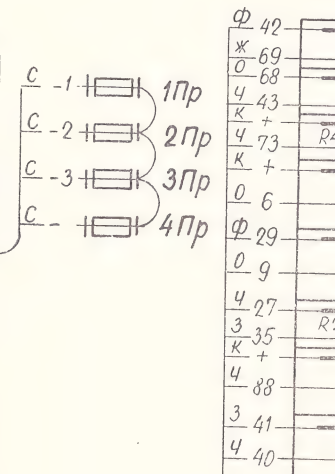 С -1 1Пр
С -2 2Пр
С -3 3Пр
С - 4Пр
Ф 42
Ж 69
О 68
Ч 43
К +
Ч 73
К +
О 6
Ф 29
О 9
Ч 27
З 35
К +
Ч 88
З 41
Ч 40